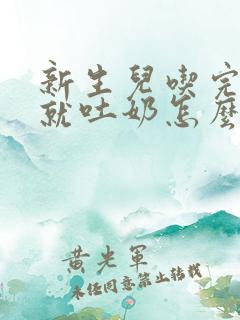 新生兒喫完
就吐奶怎麼
黃光軍
未經同意禁止轉載